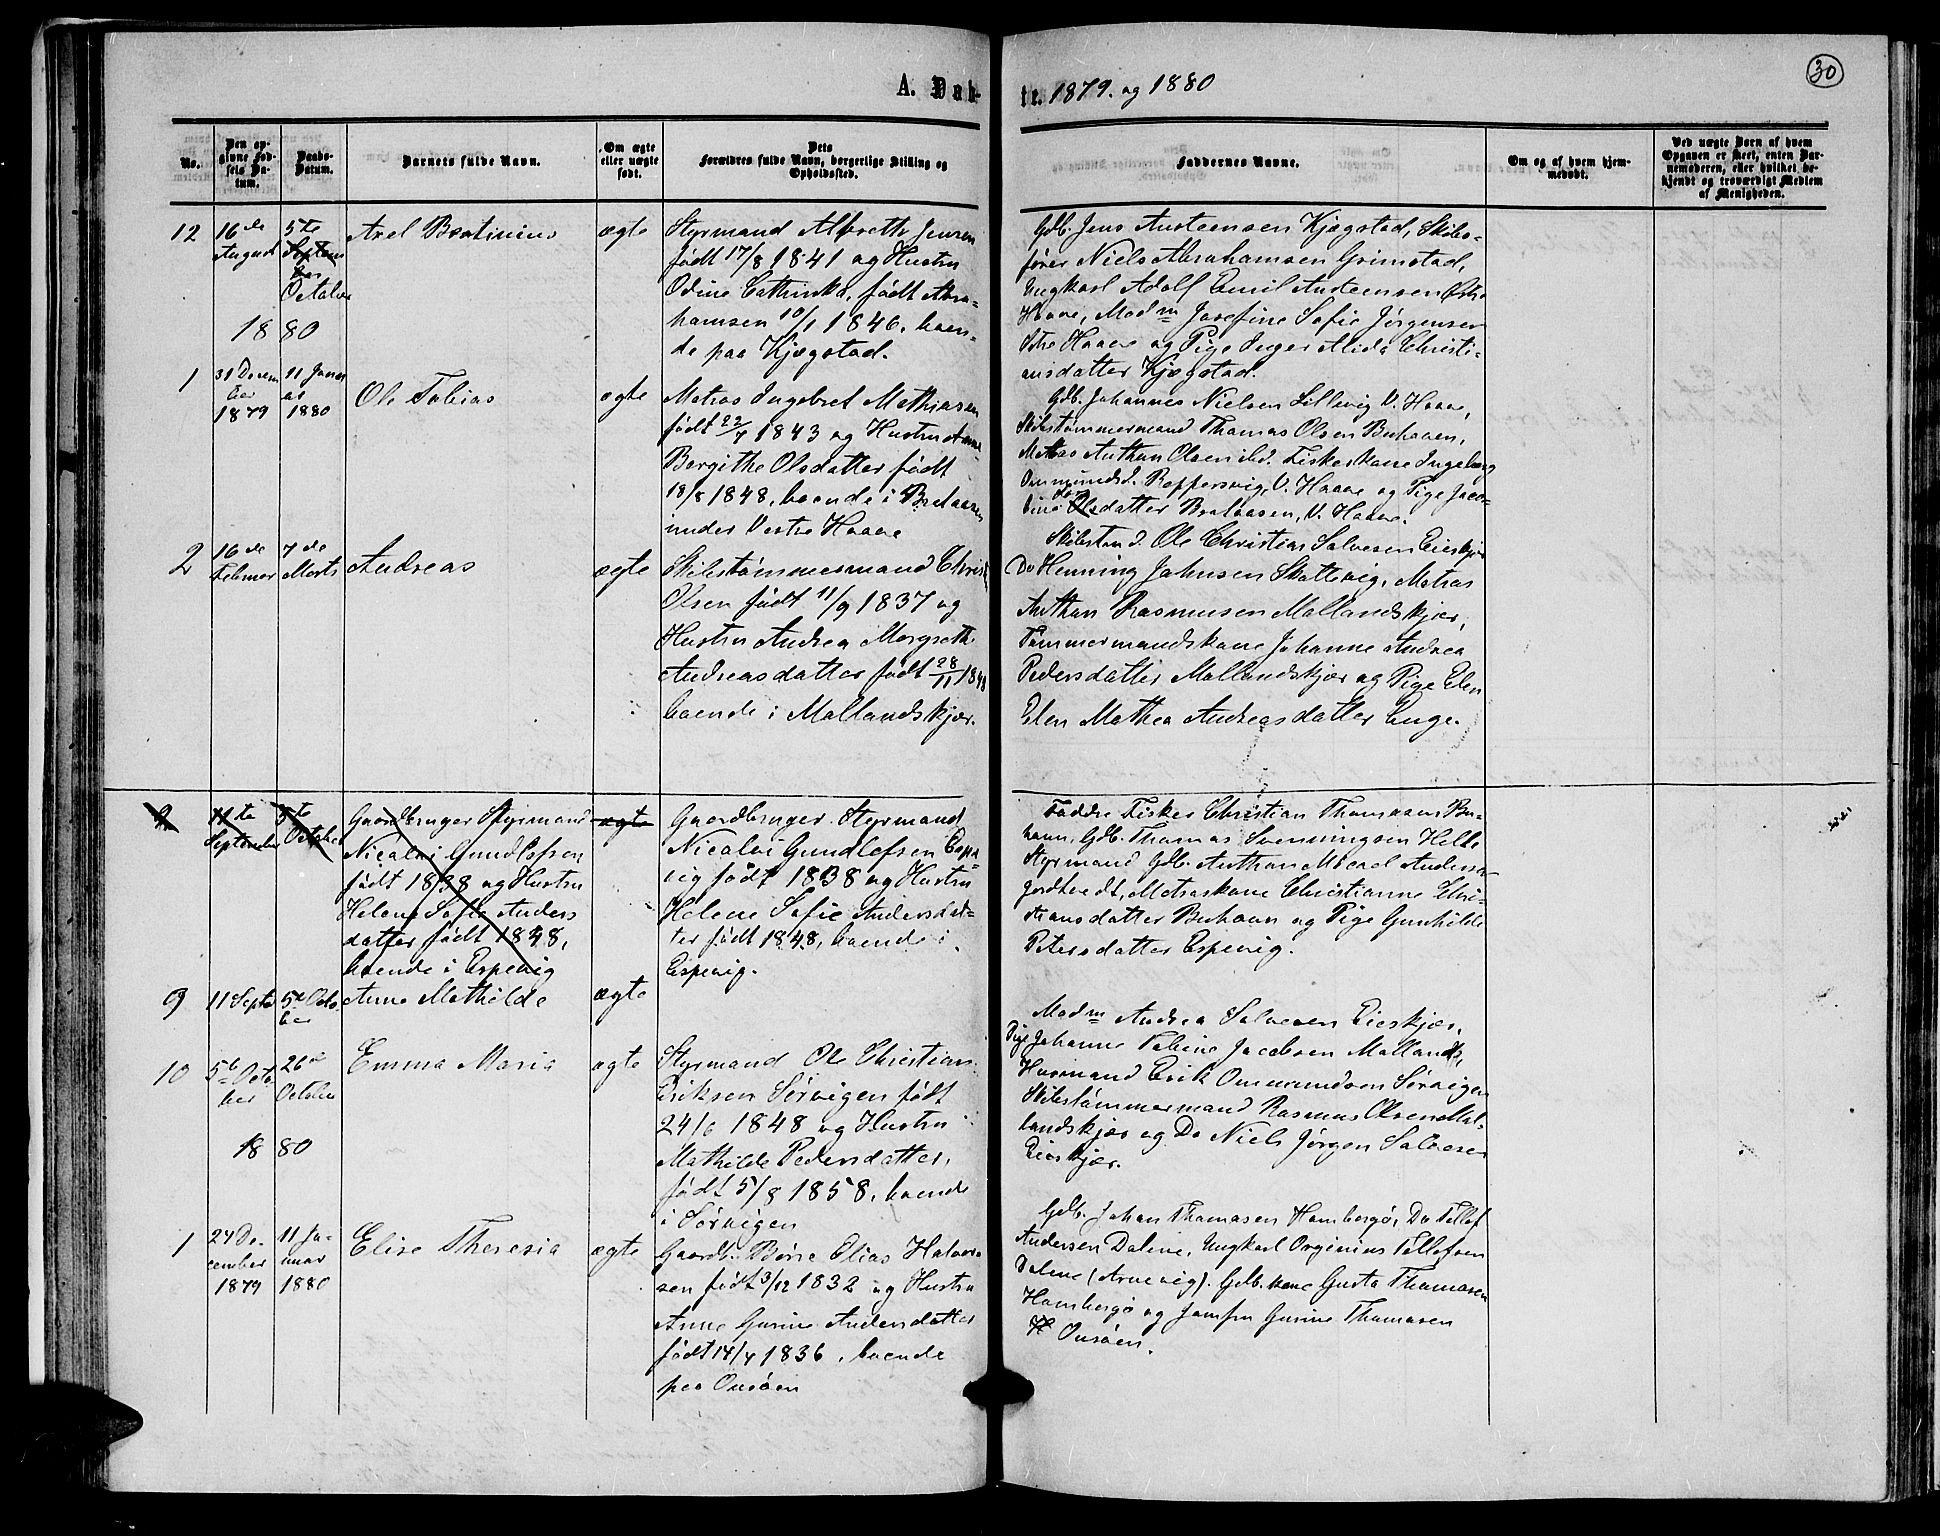 A. Døb-
te. 1879. og 1880
30
No.
Den op-
givne Fød-
sels Da-
tum.
Daabs-
Datum.
Barnets fulde Navn.
Om ægte
eller uægte
født.
Dets
Forældres fulde Navn, borgerlige Stilling og
Opholdssted.
Faddernes Navne.
Om og af hvem hjem-
medøbt.
Ved uægte Børn af hvem
Opgaven er skeet, enten Bar-
nemoderen, eller hvilket be-
kjendt og troværdigt Medlem
af Menigheden.
12
16de
August
5te
Septem
ber
October
Axel Bertinius
ægte
Styrmand Albreth Jensen
født 17/8 1841 og Hustru
Odine Cathinka, født Abra-
hamsen 10/1 1846, boen-
de paa Kjægstad.
Gdb. Jens Austeensen Kjægstad, Skibs-
fører Niels Abrahamsen Grimstad,
Ungkarl Adolf Emil Austeensen Østre
Haave, Mad m Josefine Sofie Jørgensen
Østre Haave og Pige Inger Alida Christi-
ansdatter Kjægstad.
1880
1
31 Decem
ber
1879
11 Janu
ar
1880
Ole Tobias
ægte
Matros Ingebret Mathiasen
født 22/7 1843 og Hustru Anne
Bergithe Olsdatter født
18/8 1848, boende i Bredaasen
under Vestre Haave
Gdb. Johannes Nielsen Lillevig V. Haave,
Skibstømmermand Thomas Olsen Buhaven,
Matros Anthon Olsen ibd. Fiskerkone Ingeborg
Ommundsd. Roppersvig, V. Haave og Pige Jaco-
bine Olsdatter Bredaasen, V. Haave.
2
16de
Februar
7de
Marts
Andreas
ægte
Skibstømmermand Christ
Olsen født 11/9 1837 og
Hustru Andrea Margreth
Andreasdatter født 28/11 1848
boende i Mallandskjær.
Skibstøm d. Ole Christian Salvesen Eieskjær
Do Henning Johnsen Skottevig, Matros
Anthon Rasmusen Mallandskjær,
Tømmermandskone Johanne Andrea
Pedersdatter Mallandskjær og Pige Elen
Elen Mathea Andreasdatter Enge.
9
11te
September
5te
October
Gaardbruger Styrmand
Nicolai Gundlofsen
født 1838 og Hustru
Helene Sofie Anders
datter født 1848,
boende i Espevig
ægte
Gaardbruger Styrmand
Nicolai Gundlofsen Espe
vig født 1838 og Hustru
Helene Sofie Andersdat-
ter født 1848, boende i
Espevig.
Faddre Fisker Christian Thomasen Bu-
haven, Gdb. Thomas Svenningsen Helle
Styrmand Gdb. Anthon Moerel Andersen
fordtvedt, Matroskone Christianne Chri-
stiansdatter Buhaven og Pige Gunhilde
Petersdatter Espevig.
9
11 Septe
5te Octo
ber
Anne Mathilde
ægte
10
5te Octo
ber
26de
October
Emma Maria
ægte
Styrmand Ole Christian
Eriksen Sørvigen født
24/6 1848 og Hustru
Mathilde Pedersdatter,
født 5/8 1858, boende
i Sørvigen
Mad m Andrea Salvesen Eieskjær,
Pige Johanne Tobine Jacobsen Mallands,
Husmand Erik Ommundsen Sørvigen
Skibstømmermand Rasmus Olsen Mal-
landskjær og Do Niels Jørgen Salvesen
Eieskjær.
1880
1
24 De-
cember
1879
11 Ja-
nuar
1880
Elise Theresia
ægte
Gaardb. Børre Elias Halvor
sen født 3/12 1832 og Hustru
Anne Gurine Andersdatter
født 14/4 1836, boende
paa Ousøen
Gdb. Johan Thomasen Hombergø, Do Tellef
Andersen Dalene, Ungkarl Orginius Tellefsen
Dalene (Arnevig). Gdb. kone Gusta Thomasen
Hombergø og Jomfru Gurine Thomasen
Ousøen.